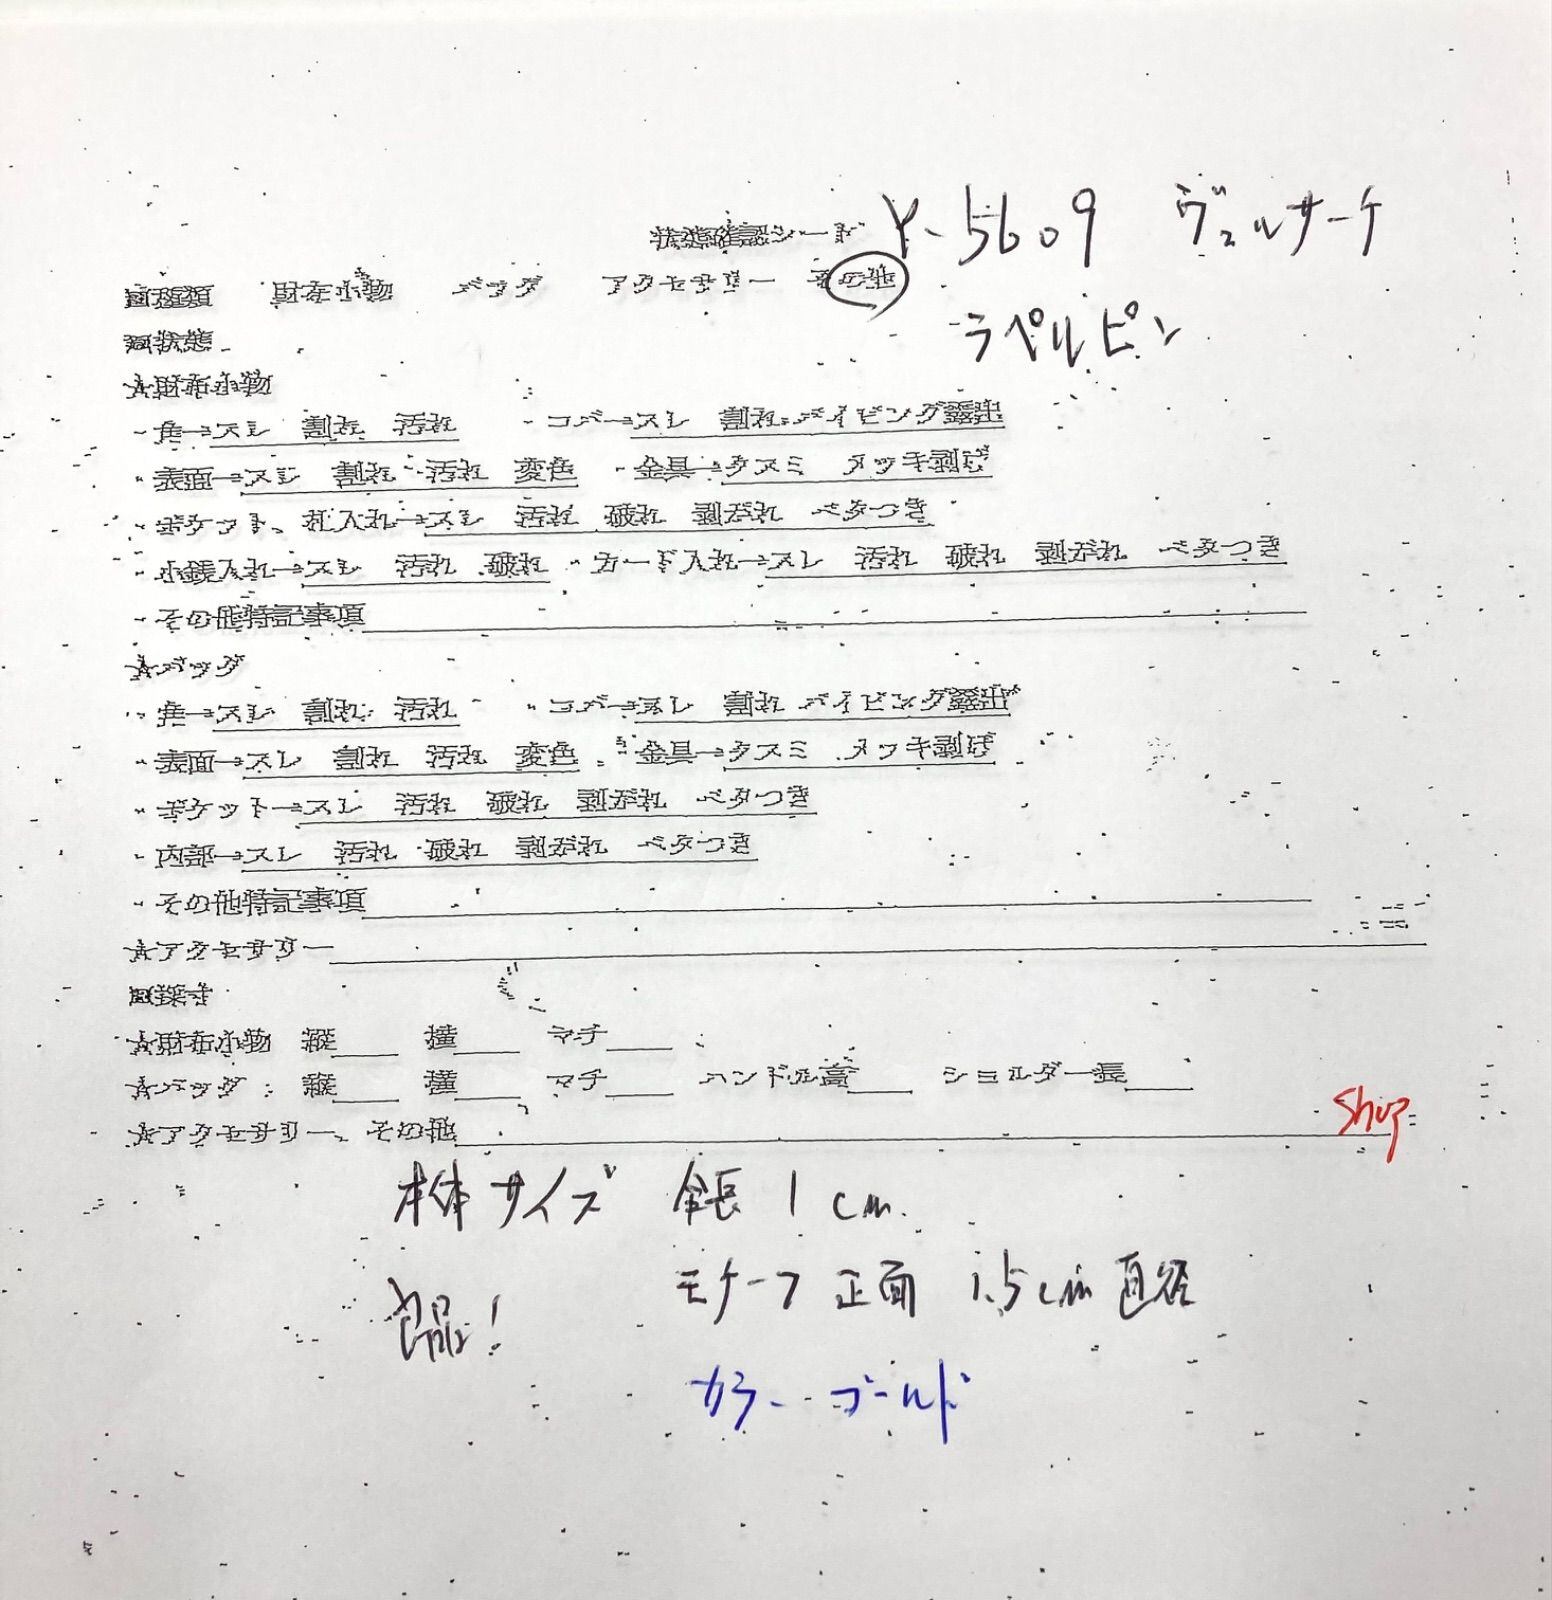 状態確認シート Y-5609 ヴェルサーチ
回種類 財布小物 バッグ アクセサリー その他
ラペルピン
回状態
☆財布小物
・角→スレ 割れ 汚れ ・コバ→スレ 割れ パイピング露出
・表面→スレ 割れ 汚れ 変色 ・金具→クスミ メッキ剥げ
・ポケット、札入れ→スレ 汚れ 破れ 剥がれ ベタつき
・小銭入れ→スレ 汚れ 破れ ・カード入れ→スレ 汚れ 破れ 剥がれ ベタつき
・その他特記事項
☆バッグ
・角→スレ 割れ 汚れ ・コバ→スレ 割れ パイピング露出
・表面→スレ 割れ 汚れ 変色 ・金具→クスミ メッキ剥げ
・ポケット→スレ 汚れ 破れ 剥がれ ベタつき
・内部→スレ 汚れ 破れ 剥がれ ベタつき
・その他特記事項
☆アクセサリー
回採寸
☆財布小物 縦 横 マチ
☆バッグ 縦 横 マチ ハンドル高 ショルダー長
☆アクセサリー、その他
Shop
本体サイズ 全長 1cm
モチーフ 正面 1.5cm 直径
良品!
カラー ゴールド